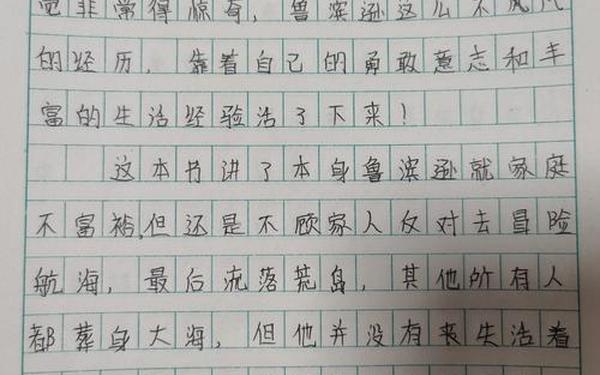 觉非常得惊奇，鲁滨逊这么不凡
的经历，靠着自己的勇敢意志和丰
富的生活经验活了下来！
这本书讲了本身鲁滨逊就家庭
不富裕，但还是不顾家人反对去冒险
航海，最后流落荒岛，其他所有人
都葬身大海，但他并没有丧失活着